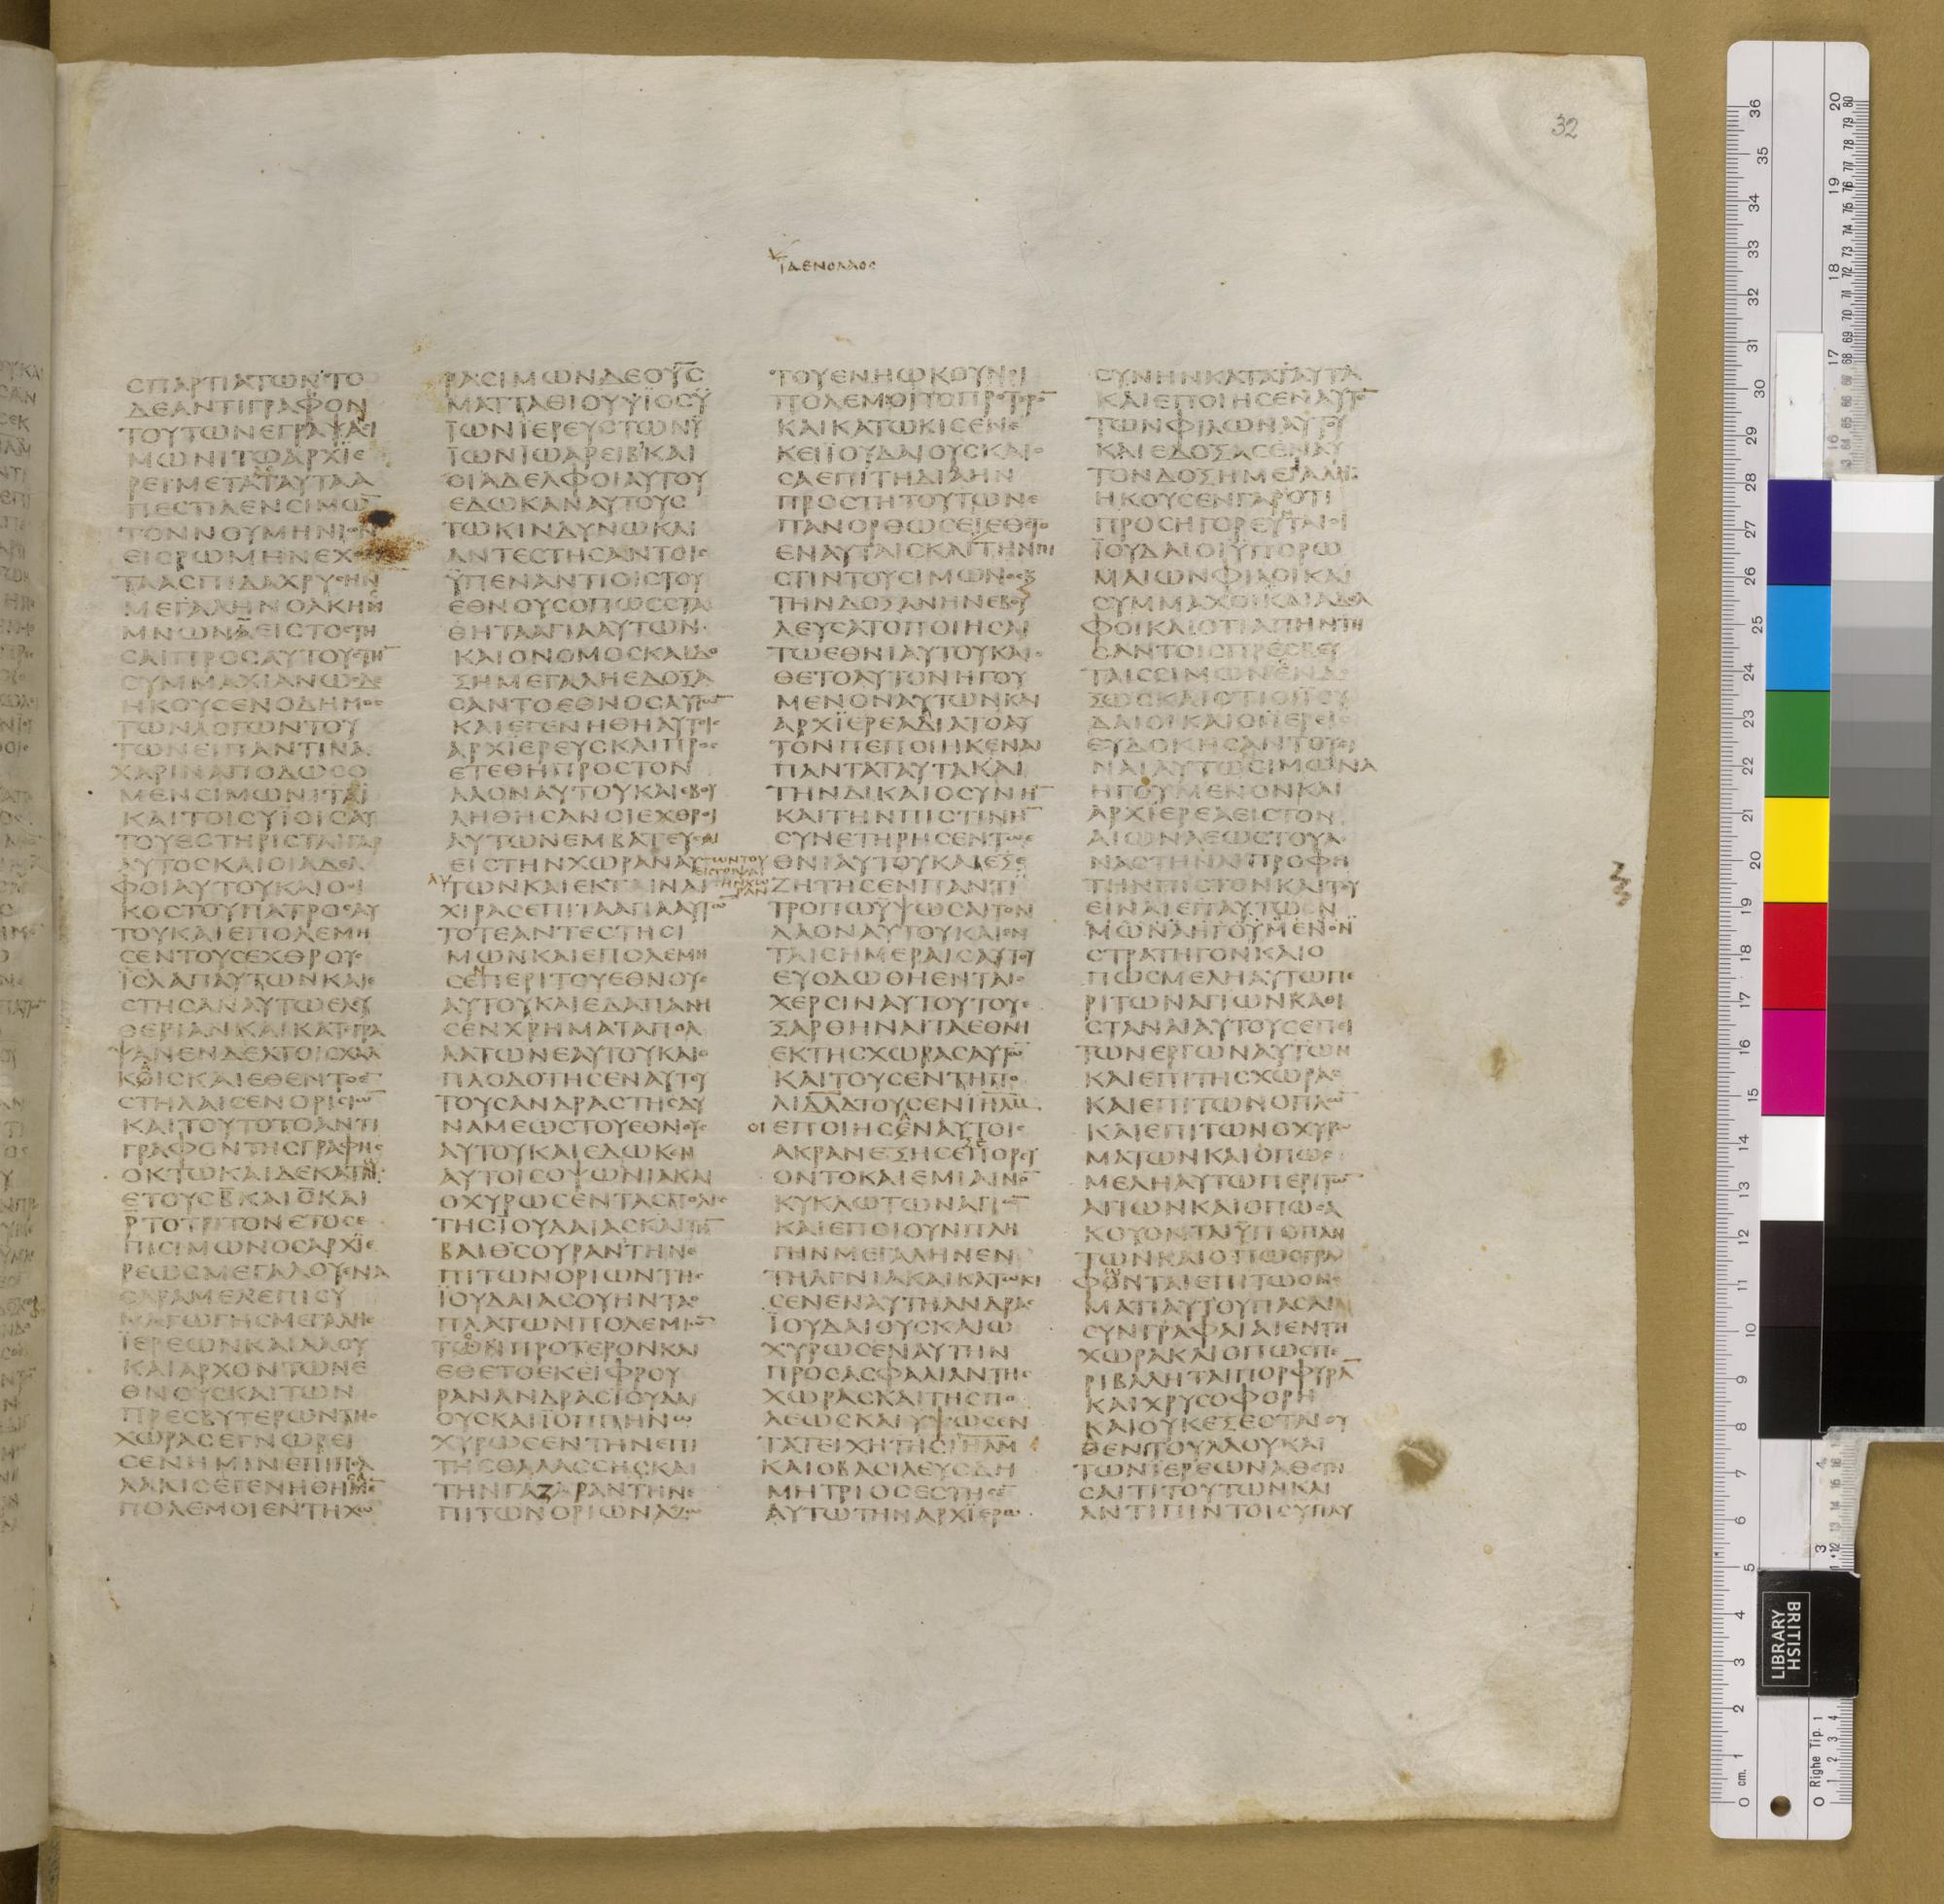 32
ΙΔΕΝΟΛΑΟΣ
ϹΠΑΡΤΙΑΤΩΝΤΟ
ΔΕΑΝΤΙΓΡΑΦΟΝ
ΤΟΥΤΩΝΕΓΡΑΨΑΙ
ΜΩΝΙΤΩΑΡΧΪΕ
ΡΕΙΜΕΤΑΤΑΥΤΑΑ
ΠΕϹΤΙΛΕΝϹΙΜΩ̅
ΤΟΝΝΟΥΜΗΝΙΟΝ
ΕΙϹΡΩΜΗΝΕΧΟ
ΤΑΑϹΠΙΔΑΧΡΥϹΗΝ
ΜΕΓΑΛΗΝΟΛΚΗΝ
ΜΝΩΝΑ̅ΕΙϹΤΟϹΤΗ
ϹΑΙΠΡΟϹΑΥΤΟΥϹΤΗ̅
ϹΥΜΜΑΧΙΑΝΩϹΔΕ
ΗΚΟΥϹΕΝΟΔΗΜΟϹ
ΤΩΝΛΟΓΩΝΤΟΥ
ΤΩΝΕΙΠΑΝΤΙΝΑ
ΧΑΡΙΝΑΠΟΔΩϹΟ
ΜΕΝϹΙΜΩΝΙΤΑΙ
ΚΑΙΤΟΙϹΥΪΟΙϹΑΥ
ΤΟΥΕϹΤΗΡΙϹΤΑΙΓΑΡ
ΑΥΤΟϹΚΑΙΟΙΑΔΕΛ
ΦΟΙΑΥΤΟΥΚΑΙΟΟΙ
ΚΟϹΤΟΥΠΑΤΡΟϹΑΥ
ΤΟΥΚΑΙΕΠΟΛΕΜΗ
ϹΕΝΤΟΥϹΕΧΘΡΟΥϹ
ΪϹΛΑΠΑΥΤΩΝΚΑΙΕ
ϹΤΗϹΑΝΑΥΤΩΕΛΕΥ
ΘΕΡΙΑΝΚΑΙΚΑΤΕΓΡΑ
ΨΑΝΕΝΔΕΛΤΟΙϹΧΑΛ
ΚΟΙϹΚΑΙΕΘΕΝΤΟΕ̅
ϹΤΗΛΑΙϹΕΝΟΡΙϹΙΩ̅
ΚΑΙΤΟΥΤΟΤΟΑΝΤΙ
ΓΡΑΦΟΝΤΗϹΓΡΑΦΗϹ
ΟΚΤΩΚΑΙΔΕΚΑΤΗ
ΕΤΟΥϹΒ̅ΚΑΙΟ̅ΚΑΙ
Ρ̅ΤΟΤΡΙΤΟΝΕΤΟϹΕ
ΠΙϹΙΜΩΝΟϹΑΡΧΪΕ
ΡΕΩϹΜΕΓΑΛΟΥΕΝΑ
ϹΑΡΑΜΕΛΕΠΙϹΥ
ΝΑΓΩΓΗϹΜΕΓΑΛΗϹ
ΪΕΡΕΩΝΚΑΙΛΑΟΥ
ΚΑΙΑΡΧΟΝΤΩΝΕ
ΘΝΟΥϹΚΑΙΤΩΝ
ΠΡΕϹΒΥΤΕΡΩΝΤΗϹ
ΧΩΡΑϹΕΓΝΩΡΕΙ
ϹΕΝΗΜΙΝΕΠΙΠΟΛ
ΛΑΚΙϹΕΓΕΝΗΘΗϹΑ̅
ΠΟΛΕΜΟΙΕΝΤΗΧΩ
ΡΑϹΙΜΩΝΔΕΟΥΪϹ
ΜΑΤΤΑΘΙΟΥΥΪΟϹΫ
ΪΩΝΪΕΡΕΥϹΤΩΝΫ
ΪΩΝΪΩΑΡΕΙΒΚΑΙ
ΟΙΑΔΕΛΦΟΙΑΥΤΟΥ
ΕΔΩΚΑΝΑΥΤΟΥϹ
ΤΩΚΙΝΔΥΝΩΚΑΙ
ΑΝΤΕϹΤΗϹΑΝΤΟΙϹ
ΫΠΕΝΑΝΤΙΟΙϹΤΟΥ
ΕΘΝΟΥϹΟΠΩϹϹΤΑ
ΘΗΤΑΑΓΙΑΑΥΤΩΝ
ΚΑΙΟΝΟΜΟϹΚΑΙΔΟ
ΞΗΜΕΓΑΛΗΕΔΟΞΑ
ϹΑΝΤΟΕΘΝΟϹΑΥΤΩ̅
ΚΑΙΕΓΕΝΗΘΗΑΥΤΟΙϹ
ΑΡΧΪΕΡΕΥϹΚΑΙΠΡΟϹ
ΕΤΕΘΗΠΡΟϹΤΟΝ
ΛΑΟΝΑΥΤΟΥΚΑΙΕΒΟΥ
ΛΗΘΗϹΑΝΟΙΕΧΘΡΟΙ
ΑΥΤΩΝΕΜΒΑΤΕΥϹΑΙ
ΕΙϹΤΗΝΧΩΡΑΝΑΥΤΩΝΤΟΥ
ΑΥΤΩΝΚΑΙΕΚΤΙΝΑΙ
ΧΙΡΑϹΕΠΙΤΑΑΓΙΑΑΥΤΩ̅
ΤΟΤΕΑΝΤΕϹΤΗϹΙ
ΜΩΝΚΑΙΕΠΟΛΕΜΗ
ϹΕΝΠΕΡΙΤΟΥΕΘΝΟΥϹ
ΑΥΤΟΥΚΑΙΕΔΑΠΑΝΗ
ϹΕΝΧΡΗΜΑΤΑΠΟΛ
ΛΑΤΩΝΕΑΥΤΟΥΚΑΙΟ
ΠΛΟΔΟΤΗϹΕΝΑΥΤΟΥ
ΤΟΥϹΑΝΔΡΑϹΤΗϹΔΥ
ΝΑΜΕΩϹΤΟΥΕΘΝΟΥϹ
ΑΥΤΟΥΚΑΙΕΔΩΚΕΝ
ΑΥΤΟΙϹΟΨΩΝΙΑΚΑΙ
ΟΧΥΡΩϹΕΝΤΑϹΠΟΛΙϹ
ΤΗϹΪΟΥΔΑΙΑϹΚΑΙΤΗ̅
ΒΑΙΘϹΟΥΡΑΝΤΗΝΕ
ΠΙΤΩΝΟΡΙΩΝΤΗϹ
ΪΟΥΔΑΙΑϹΟΥΗΝΤΑΟ
ΠΛΑΤΩΝΠΟΛΕΜΙΩ̅
ΤΟΠΡΟΤΕΡΟΝΚΑΙ
ΕΘΕΤΟΕΚΕΙΦΡΟΥ
ΡΑΝΑΝΔΡΑϹΪΟΥΔΑΙ
ΟΥϹΚΑΙΪΟΠΠΗΝΩ
ΧΥΡΩϹΕΝΤΗΝΕΠΙ
ΤΗϹΘΑΛΑϹϹΗϹΚΑΙ
ΤΗΝΓΑΖΑΡΑΝΤΗΝΕ
ΠΙΤΩΝΟΡΙΩΝΑΖΩ
ΤΟΥΕΝΗΩΚΟΥΝΟΙ
ΠΟΛΕΜΙΟΙΤΟΠΡΟΤΕΡΟ̅
ΚΑΙΚΑΤΩΚΙϹΕΝΕ
ΚΕΙΪΟΥΔΑΙΟΥϹΚΑΙΟ
ϹΑΕΠΙΤΗΔΙΑΗΝ
ΠΡΟϹΤΗΤΟΥΤΩΝΕ
ΠΑΝΟΡΘΩϹΕΙΕΘΕΤΟ
ΕΝΑΥΤΑΙϹΚΑΙΤΗΝΠΙ
ϹΤΙΝΤΟΥϹΙΜΩΝΟϹ
ΤΗΝΔΟΞΑΝΗΝΕΒΟΥ
ΛΕΥϹΑΤΟΠΟΙΗϹΑΙ
ΤΩΕΘΝΙΑΥΤΟΥΚΑΙΕ
ΘΕΤΟΑΥΤΟΝΗΓΟΥ
ΜΕΝΟΝΑΥΤΩΝΚΑΙ
ΑΡΧΪΕΡΕΑΔΙΑΤΟΑΥ
ΤΟΝΠΕΠΟΙΗΚΕΝΑΙ
ΠΑΝΤΑΤΑΥΤΑΚΑΙ
ΤΗΝΔΙΚΑΙΟϹΥΝΗ̅
ΚΑΙΤΗΝΠΙϹΤΙΝΗ̅
ϹΥΝΕΤΗΡΗϹΕΝΤΩΕ
ΘΝΙΑΥΤΟΥΚΑΙΕΞΕ
ΖΗΤΗϹΕΝΠΑΝΤΙ
ΤΡΟΠΩΫΨΩϹΑΙΤΟΝ
ΛΑΟΝΑΥΤΟΥΚΑΙΕΝ
ΤΑΙϹΗΜΕΡΑΙϹΑΥΤΟΥ
ΕΥΟΔΩΘΗΕΝΤΑΙϹ
ΧΕΡϹΙΝΑΥΤΟΥΤΟΥΕ
ΞΑΡΘΗΝΑΙΤΑΕΘΝΗ
ΕΚΤΗϹΧΩΡΑϹΑΥΤΩ̅
ΚΑΙΤΟΥϹΕΝΤΗΠΟ
ΛΙΔΑ̅Δ̅ΤΟΥϹΕΝΙ̅Η̅Λ̅Μ̅
ΟΙΕΠΟΙΗϹΑΝΑΥΤΟΙϹ
ΑΚΡΑΝΕΞΗϹΕΠΟΡΕΥ
ΟΝΤΟΚΑΙΕΜΙΑΙΝΟ̅
ΚΥΚΛΩΤΩΝΑΓΙΩ̅
ΚΑΙΕΠΟΙΟΥΝΠΛΗ
ΓΗΝΜΕΓΑΛΗΝΕΝ
ΤΗΑΓΝΙΑΚΑΙΚΑΤΩΚΙ
ϹΕΝΕΝΑΥΤΗΑΝΔΡΑϹ
ΪΟΥΔΑΙΟΥϹΚΑΙΩ
ΧΥΡΩϹΕΝΑΥΤΗΝ
ΠΡΟϹΑϹΦΑΛΙΑΝΤΗϹ
ΧΩΡΑϹΚΑΙΤΗϹΠΟ
ΛΕΩϹΚΑΙΥΨΩϹΕΝ
ΤΑΤΕΙΧΗΤΗϹΙ̅Η̅Λ̅Μ̅
ΚΑΙΟΒΑϹΙΛΕΥϹΔΗ
ΜΗΤΡΙΟϹΕϹΤΗϹΕ̅
ΑΥΤΩΤΗΝΑΡΧΪΕΡΩ
ϹΥΝΗΝΚΑΤΑΤΑΥΤΑ
ΚΑΙΕΠΟΙΗϹΕΝΑΥΤΟ̅
ΤΩΝΦΙΛΩΝΑΥΤΟΥ
ΚΑΙΕΔΟΞΑϹΕΝΑΥ
ΤΟΝΔΟΞΗΜΕΓΑΛΗ
ΗΚΟΥϹΕΝΓΑΡΟΤΙ
ΠΡΟϹΗΓΟΡΕΥΤΑΙΟΙ
ΪΟΥΔΑΙΟΙΫΠΟΡΩ
ΜΑΙΩΝΦΙΛΟΙΚΑΙ
ϹΥΜΜΑΧΟΙΚΑΙΑΔΕΛ
ΦΟΙΚΑΙΟΤΙΑΠΗΝΤΗ
ϹΑΝΤΟΙϹΠΡΕϹΒΕΥ
ΤΑΙϹϹΙΜΩΝΕΝΔΟ
ΞΩϹΚΑΙΟΤΙΟΙΪΟΥ
ΔΑΙΟΙΚΑΙΟΙΪΕΡΕΙϹ
ΕΥΔΟΚΗϹΑΝΤΟΥΕΙ
ΝΑΙΑΥΤΩϹΙΜΩΝΑ
ΗΓΟΥΜΕΝΟΝΚΑΙ
ΑΡΧΪΕΡΕΑΕΙϹΤΟΝ
ΑΙΩΝΑΕΩϹΤΟΥΑ
ΝΑϹΤΗΝΑΙΠΡΟΦΗ
ΤΗΝΠΙϹΤΟΝΚΑΙΤΟΥ
ΕΙΝΑΙΕΠΑΥΤΩΝ
ΜΩΝΑΗΓΟΥΜΕΝΟΝ
ϹΤΡΑΤΗΓΟΝΚΑΙΟ
ΠΩϹΜΕΛΗΑΥΤΩΠΕ
ΡΙΤΩΝΑΓΙΩΝΚΑΘΙ
ϹΤΑΝΑΙΑΥΤΟΥϹΕΠΙ
ΤΩΝΕΡΓΩΝΑΥΤΩΝ
ΚΑΙΕΠΙΤΗϹΧΩΡΑϹ
ΚΑΙΕΠΙΤΩΝΟΠΛΩ̅
ΚΑΙΕΠΙΤΩΝΟΧΥΡΩ
ΜΑΤΩΝΚΑΙΟΠΩϹ
ΜΕΛΗΑΥΤΩΠΕΡΙΤΩ̅
ΑΓΙΩΝΚΑΙΟΠΩϹΑ
ΚΟΥΟΝΤΑΙΫΠΟΠΑΝ
ΤΩΝΚΑΙΟΠΩϹΓΡΑ
ΦΟΝΤΑΙΕΠΙΤΩΟΝΟ
ΜΑΤΙΑΥΤΟΥΠΑϹΑΙ
ϹΥΝΓΡΑΦΑΙΑΙΕΝΤΗ
ΧΩΡΑΚΑΙΟΠΩϹΠΕ
ΡΙΒΑΛΗΤΑΙΠΟΡΦΥΡΑ̅
ΚΑΙΧΡΥϹΟΦΟΡΗ
ΚΑΙΟΥΚΕΞΕϹΤΑΙΟΥ
ΘΕΝΙΤΟΥΛΑΟΥΚΑΙ
ΤΩΝΪΕΡΕΩΝΑΘΕΤΗ
ϹΑΙΤΙΤΟΥΤΩΝΚΑΙ
ΑΝΤΙΠΙΝΤΟΙϹΥΠΑΥ
BRITISH
LIBRARY